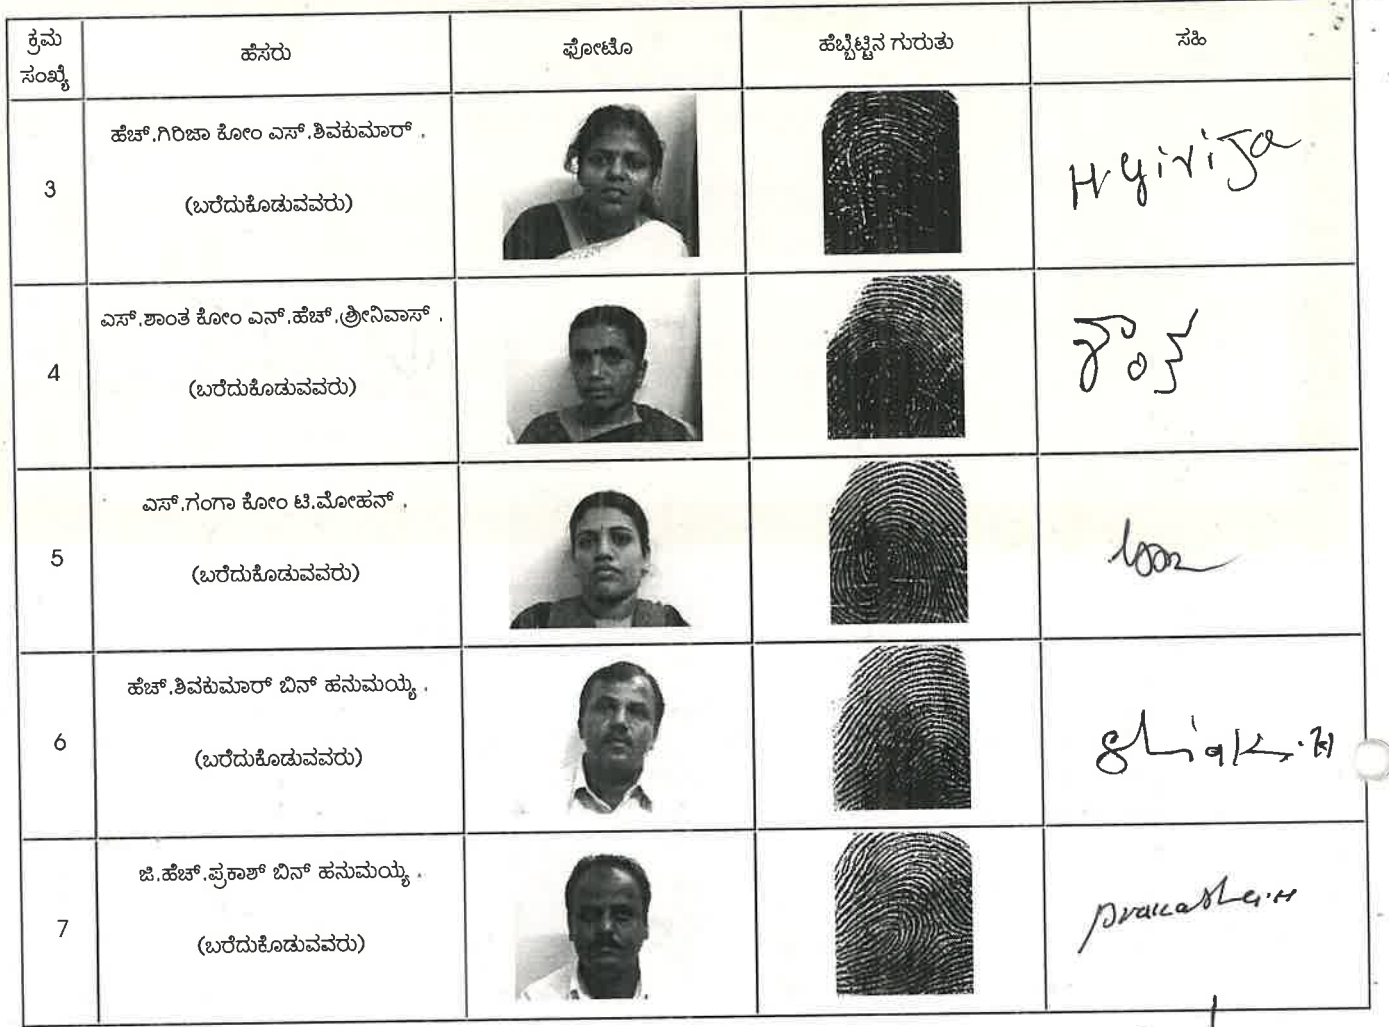 ಕ್ರಮ ಸಂಖ್ಯೆ ಹೆಸರು ಫೋಟೊ ಹೆಬ್ಬೆಟ್ಟಿನ ಗುರುತು ಸಹಿ
ಹೆಚ್.ಗಿರಿಜಾ ಕೋಂ ಎಸ್.ಶಿವಕುಮಾರ್ .
3
(ಬರೆದುಕೊಡುವವರು)
H Girija
ಎಸ್.ಶಾಂತ ಕೋಂ ಎನ್.ಹೆಚ್.ಶ್ರೀನಿವಾಸ್ .
4
(ಬರೆದುಕೊಡುವವರು)
ಎಸ್.ಗಂಗಾ ಕೋಂ ಟಿ.ಮೋಹನ್ .
5
(ಬರೆದುಕೊಡುವವರು)
ಹೆಚ್.ಶಿವಕುಮಾರ್ ಬಿನ್ ಹನುಮಯ್ಯ .
6
(ಬರೆದುಕೊಡುವವರು)
ಜಿ.ಹೆಚ್.ಪ್ರಕಾಶ್ ಬಿನ್ ಹನುಮಯ್ಯ .
7
(ಬರೆದುಕೊಡುವವರು)